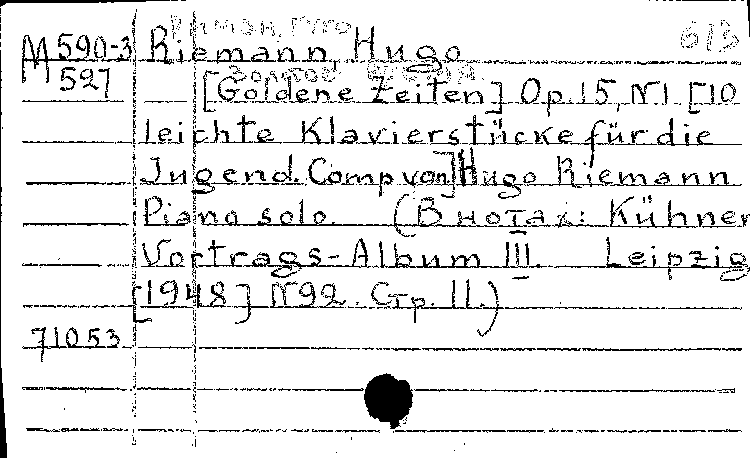 Риман, Гуго
613
M 590-3 Riemann, Hugo
527
[Goldene Zeiten] Op. 15, N1 [10
leichte Klavierstücke für die
Jugend. Comp von] Hugo Riemann
Piano solo. (В нотах: Kühner
Vortrags-Album III. Leipzig
[1948] N92. Стр. 11.)
71053